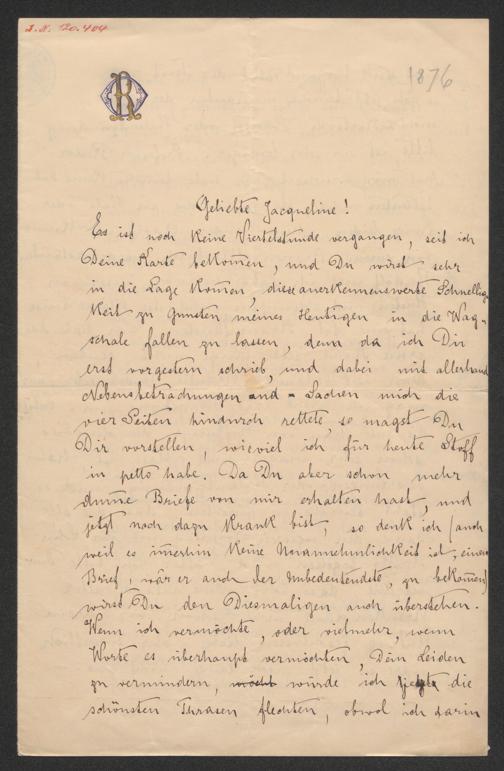 I.N. 120.404
1876
R
Geliebte Jacqueline!
Es ist noch keine Viertelstunde vergangen, seit ich
Deine Karte bekom̄en, und Du wirst sehr
in die Lage kom̄en, diese anerkennenswerte Schnellig-
keit zu gunsten meines Heutigen in die Wag-
schale fallen zu lassen, denn da ich Dir
erst vorgestern schrieb, und dabei mit allerhand
Nebensbetrachnungen und - Sachen mich die
vier Seiten hindurch rettete, so magst Du
Dir vorstellen, wieviel ich für heute Stoff
in petto habe. Da Du aber schon mehr
dum̄e Briefe von mir erhalten hast, und
jetzt noch dazu krank bist, so denk ich (auch
weil es im̄erhin keine Unannehmlichkeit ist, einen
Brief, wär er auch der unbedeutendste, zu bekom̄en)
wirst Du den Diesmaligen auch überstehen.
Wenn ich vermöchte, oder vielmehr, wenn
Worte es überhaupt vermöchten, Dein Leiden
zu vermindern, möcht würde ich jetzt die
schönsten Frasen flechten, obwol ich darin